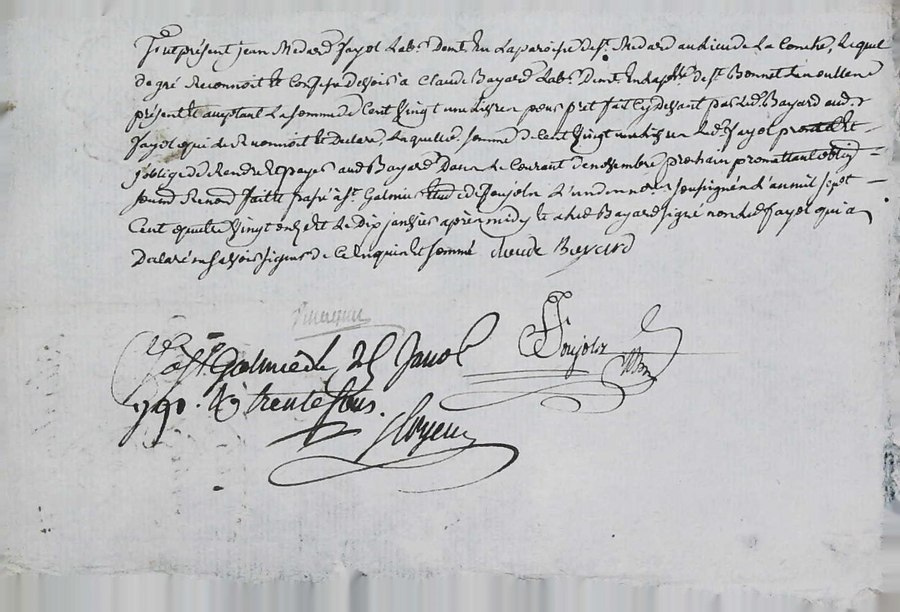 fut présent jean Medard fayol Lab.r demt. en La paroisse de St. Medard au Lieu de La Conche, Lequel
de gré Reconnoit et Confesse devoir a Claude Bayard Lab.r demt. en La p.sse de St. Bonnet
présent et acceptant La somme de Cent Vingt un Livres pour pret fait cy devant par Led. Bayard aud.
fayol qui de Reconnoit et Declare, Laquelle somme de Cent Vingt un Livres Led. fayol promet et
s'oblige de Rendre et payer aud Bayard Dans le Courant de novembre prochain promettant oblig
soum Renon fait et passé a St. Galmier Etude de Poujolz L'un des nores soussignés L'an mil sept
Cent quatre Vingt dix et Le Dix janvier après midy Et a Led Bayard signé non Led fayol qui a
Declaré ne savoir signer de Ce Enquis et sommé claude Bayard
Poujolz
a St. Galmier Le 25 Janv
1790. trente sous.